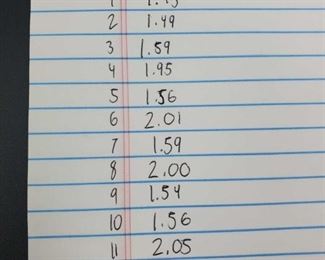 2 1.49
3 1.59
4 1.95
5 1.56
6 2.01
7 1.59
8 2.00
9 1.54
10 1.56
11 2.05